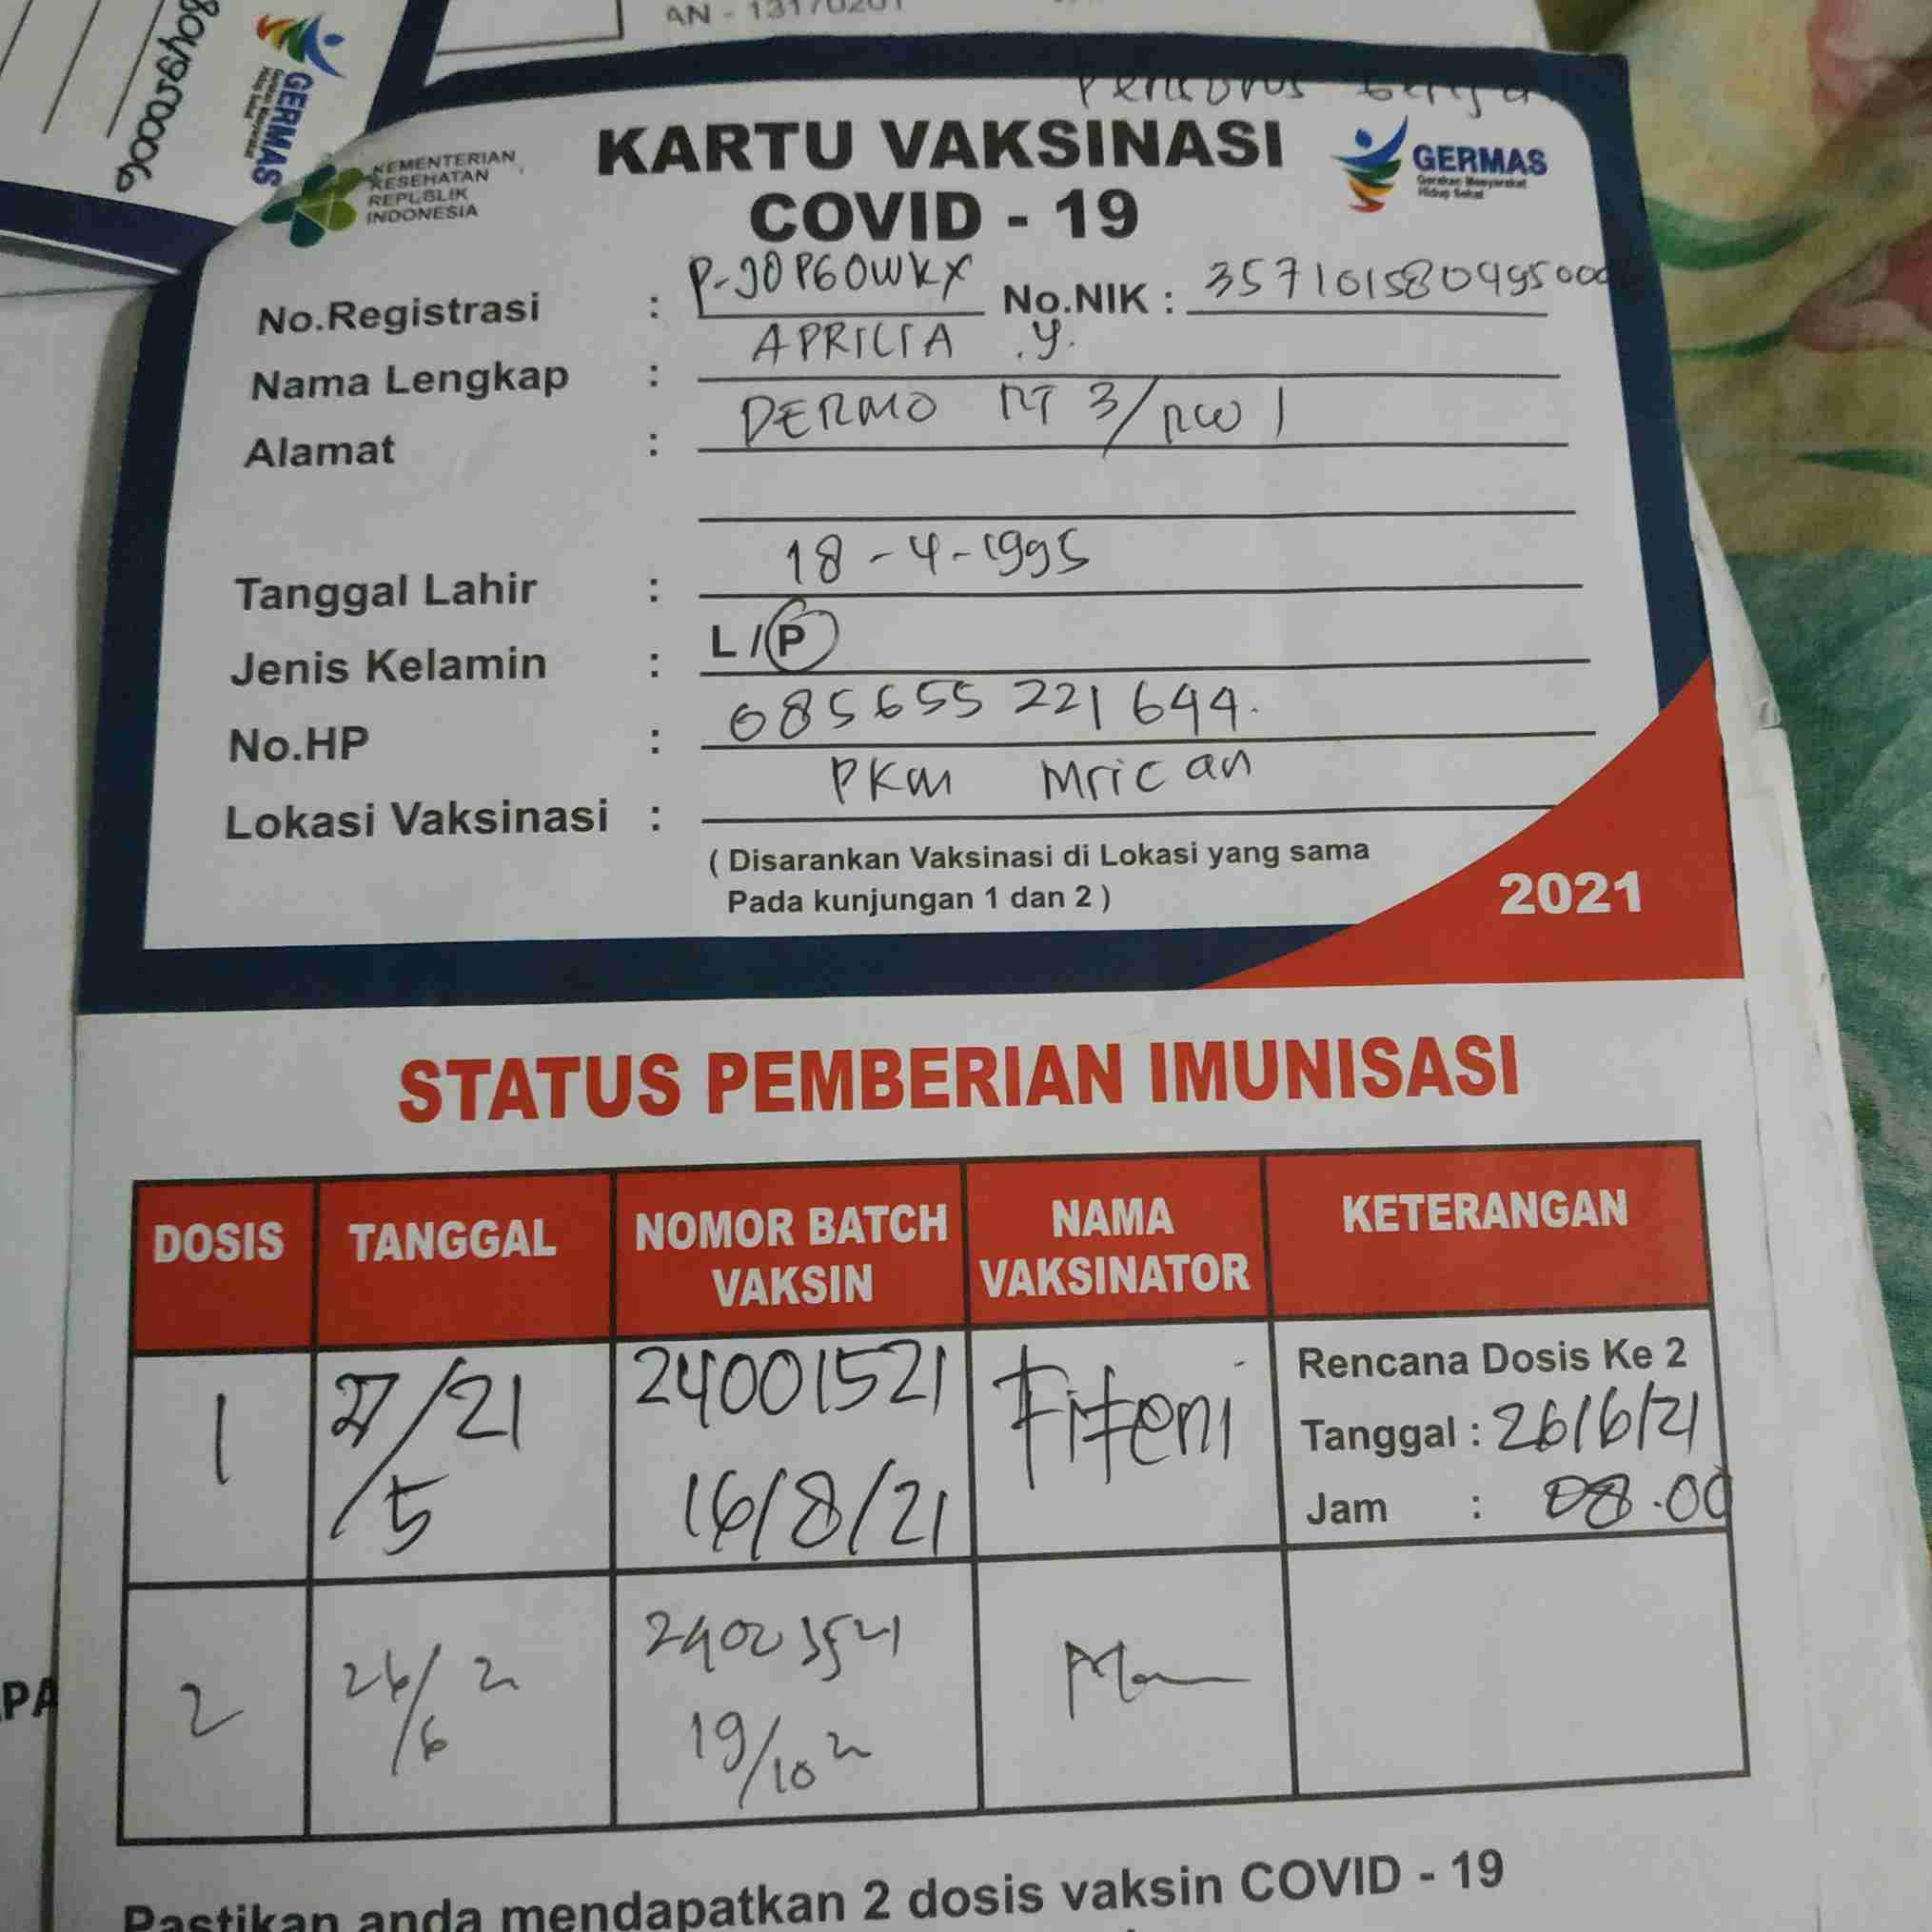 AN - 13170201
GERMAS
KEMENTERIAN
KESEHATAN
REPUBLIK
INDONESIA
KARTU VAKSINASI
COVID - 19
GERMAS
Gerakan Masyarakat
Hidup Sehat
No.Registrasi : P-J0P60WKX No.NIK : 3571015804950006
Nama Lengkap : APRILIA .Y.
Alamat : DERMO RT 3/RW 1
Tanggal Lahir : 18-4-1995
Jenis Kelamin : L/P
No.HP : 085655 221 644.
Lokasi Vaksinasi : PKM Mrican
( Disarankan Vaksinasi di Lokasi yang sama
Pada kunjungan 1 dan 2 )
2021
STATUS PEMBERIAN IMUNISASI
DOSIS TANGGAL NOMOR BATCH VAKSIN NAMA VAKSINATOR KETERANGAN
1 27/21 /5 24001521 16/8/21 Fifeni
Rencana Dosis Ke 2
Tanggal : 26/6/21
Jam : 08.00
2 26/21 /6 19/10 21
PA
Pastikan anda mendapatkan 2 dosis vaksin COVID - 19